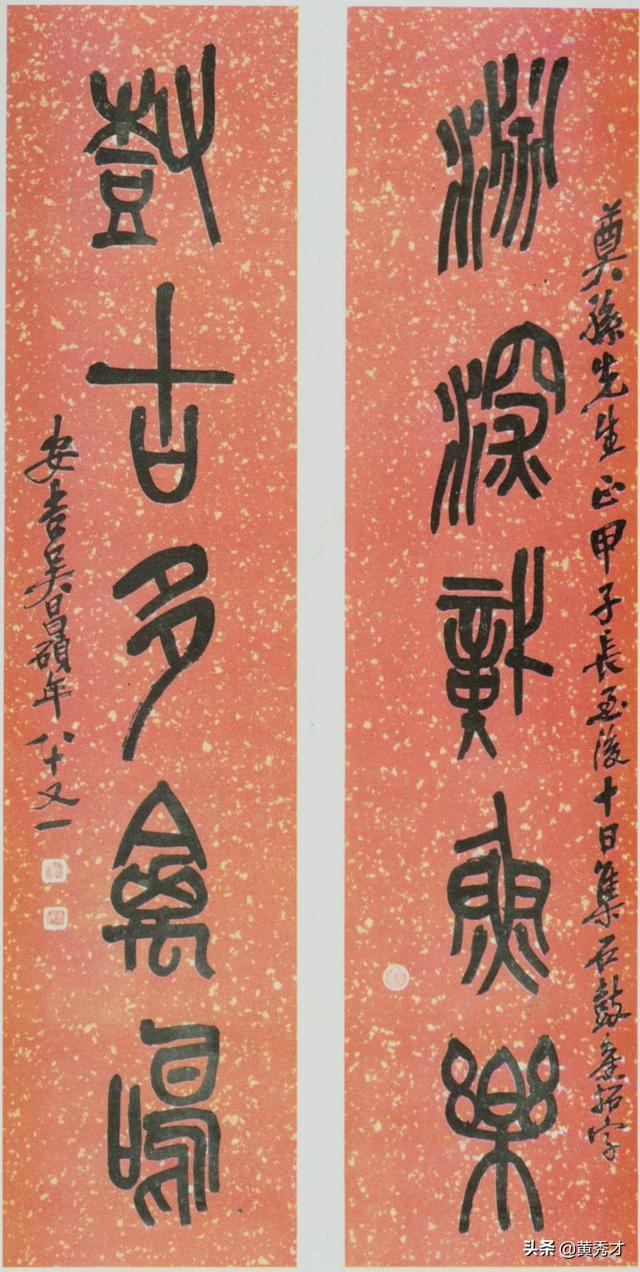 奠孫先生正甲子長至後十日集石鼓舊拓字
淵深識魚樂
樹古多禽鳴
安吉吳昌碩年八十又一
头条 @黄秀才